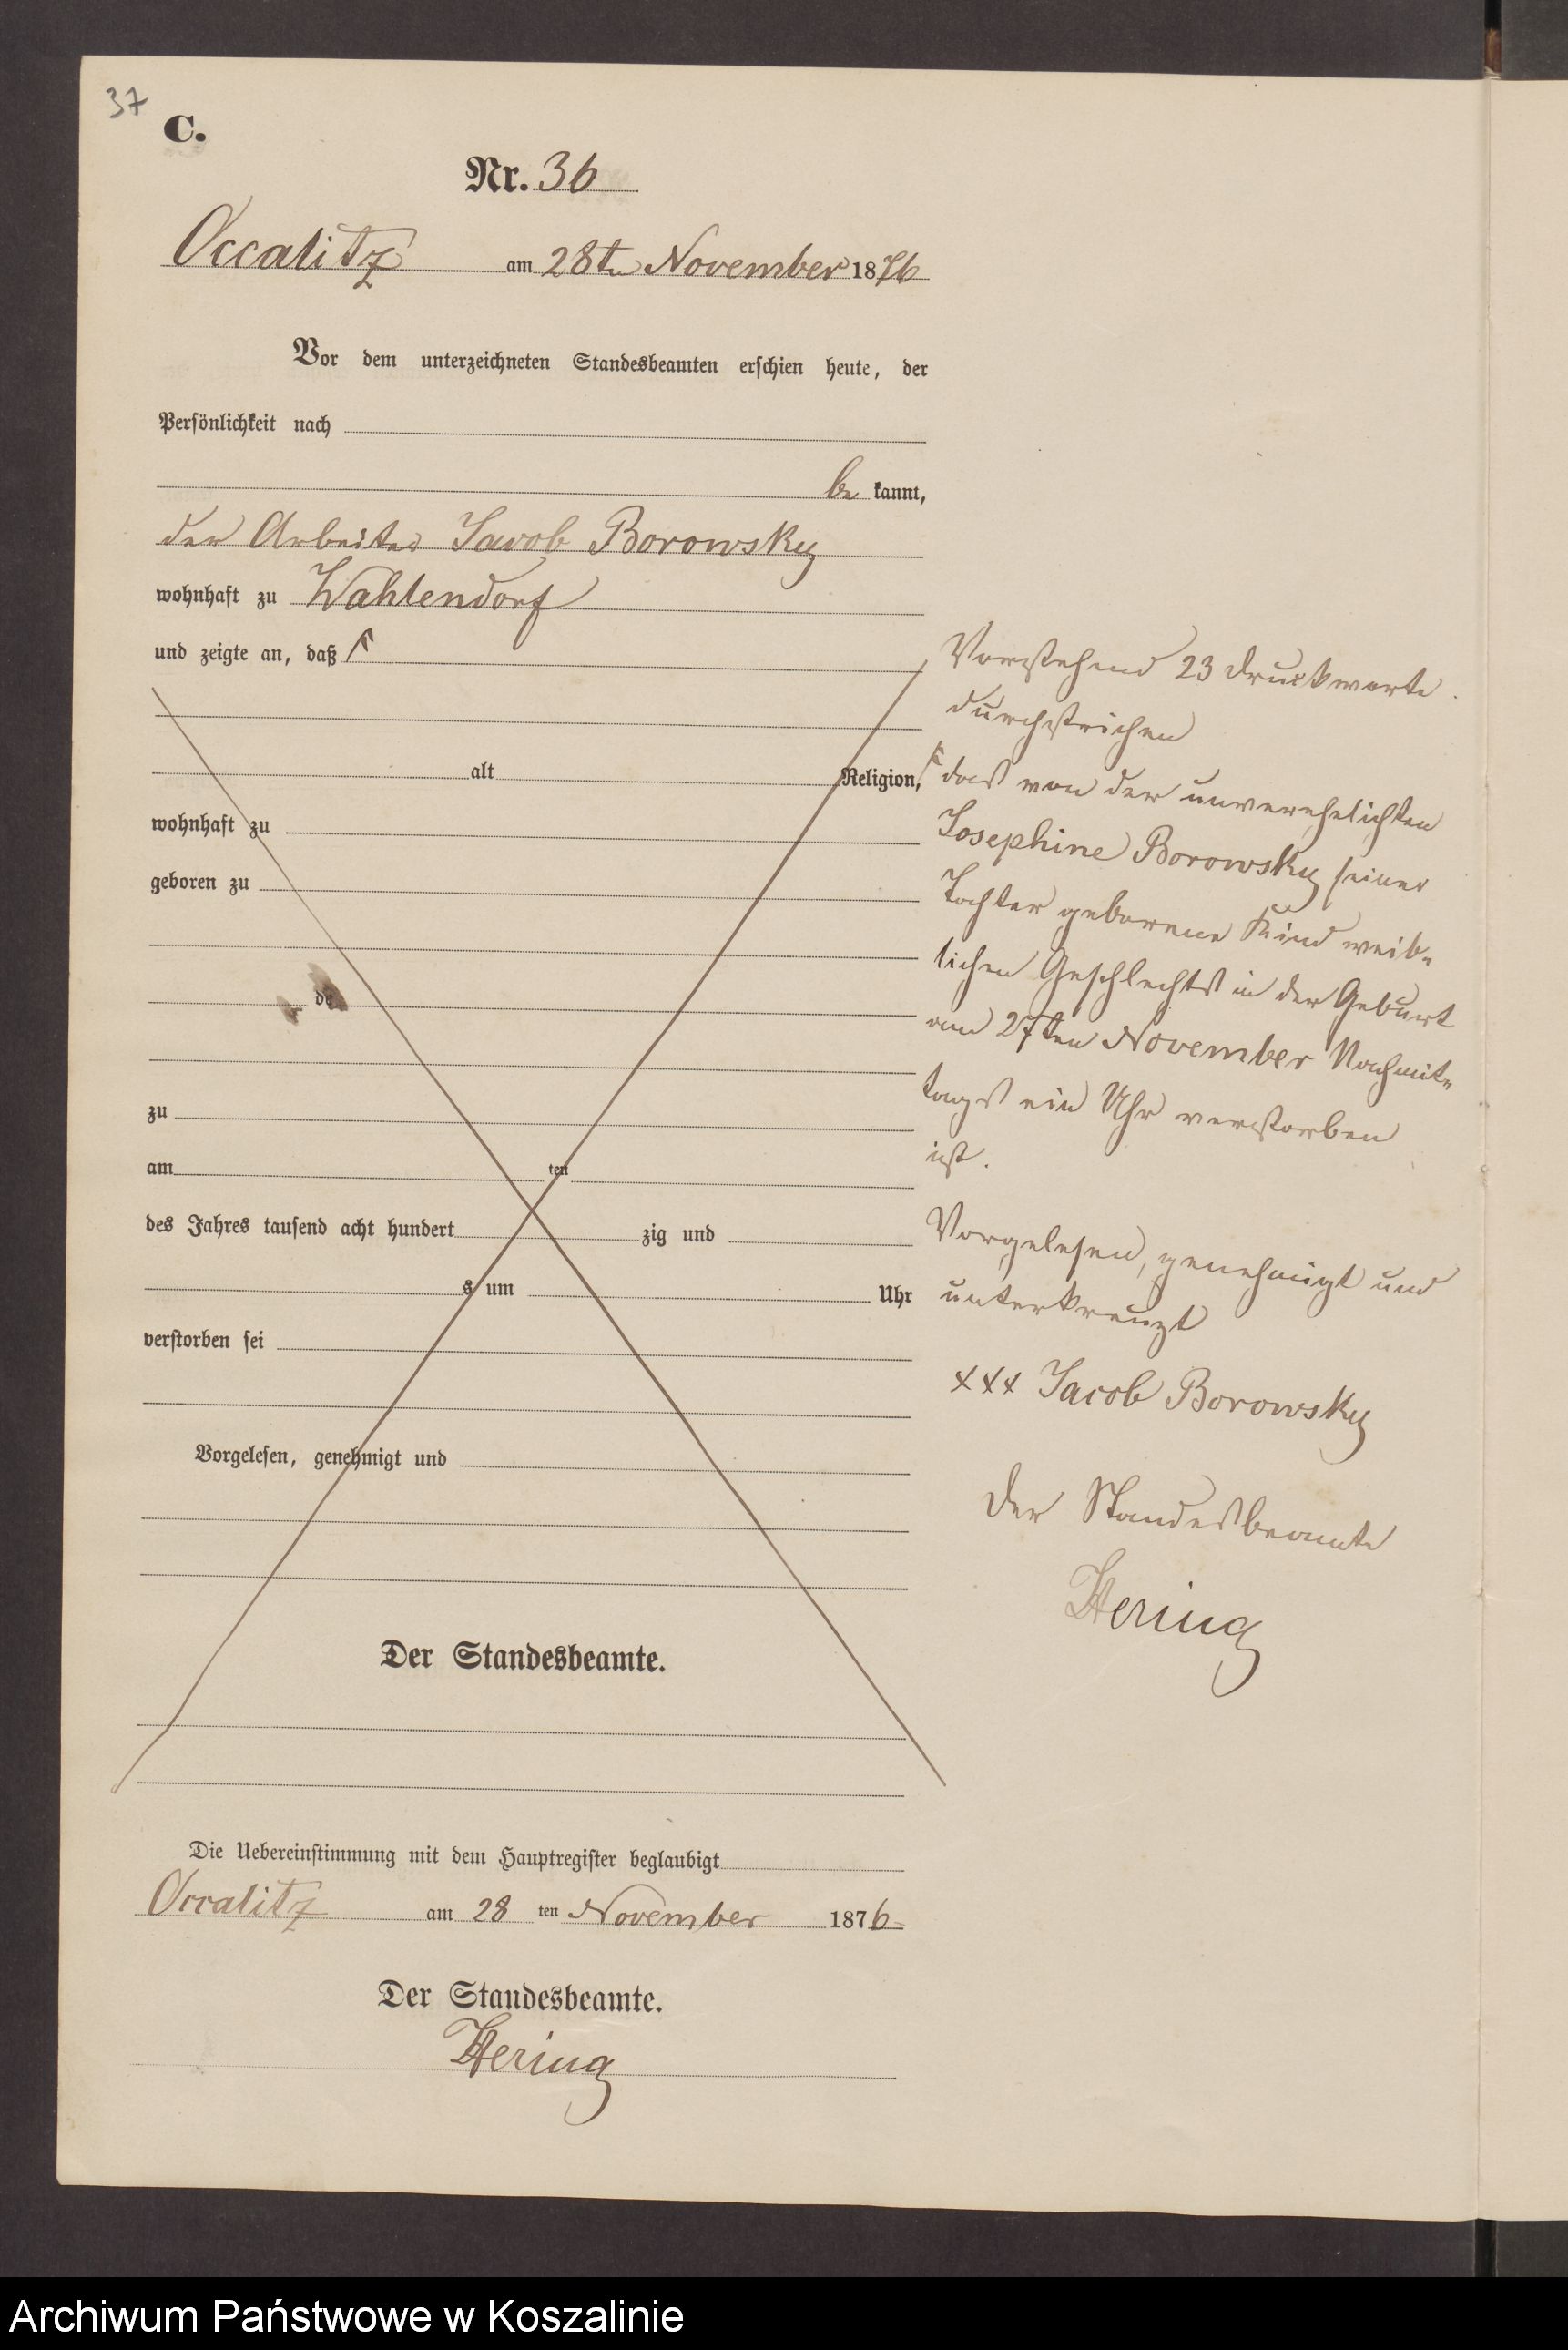 37
C.
Nr. 36
Occalitz am 28ten November 1876
Vor dem unterzeichneten Standesbeamten erschien heute, der
Persönlichkeit nach
be kannt,
der Arbeiter Jacob Borowsky
wohnhaft zu Wahlendorf
und zeigte an, daß
alt Religion,
wohnhaft zu
geboren zu
de
zu
am ten
des Jahres tausend acht hundert zig und
s um Uhr
verstorben sei
Vorgelesen, genehmigt und
Der Standesbeamte.
Vorstehend 23 Druckworte
durchstrichen
daß von der unverehelichten
Josephine Borowsky seiner
Tochter geborene Kind weib-
lichen Geschlechts in der Geburt
am 27ten November Nachmit-
tags ein Uhr verstorben
ist.
Vorgelesen, genehmigt und
unterkreuzt
xxx Jacob Borowsky
Der Standesbeamte
Hering
Die Uebereinstimmung mit dem Hauptregister beglaubigt
Occalitz am 28 ten November 1876
Der Standesbeamte.
Hering
Archiwum Państwowe w Koszalinie